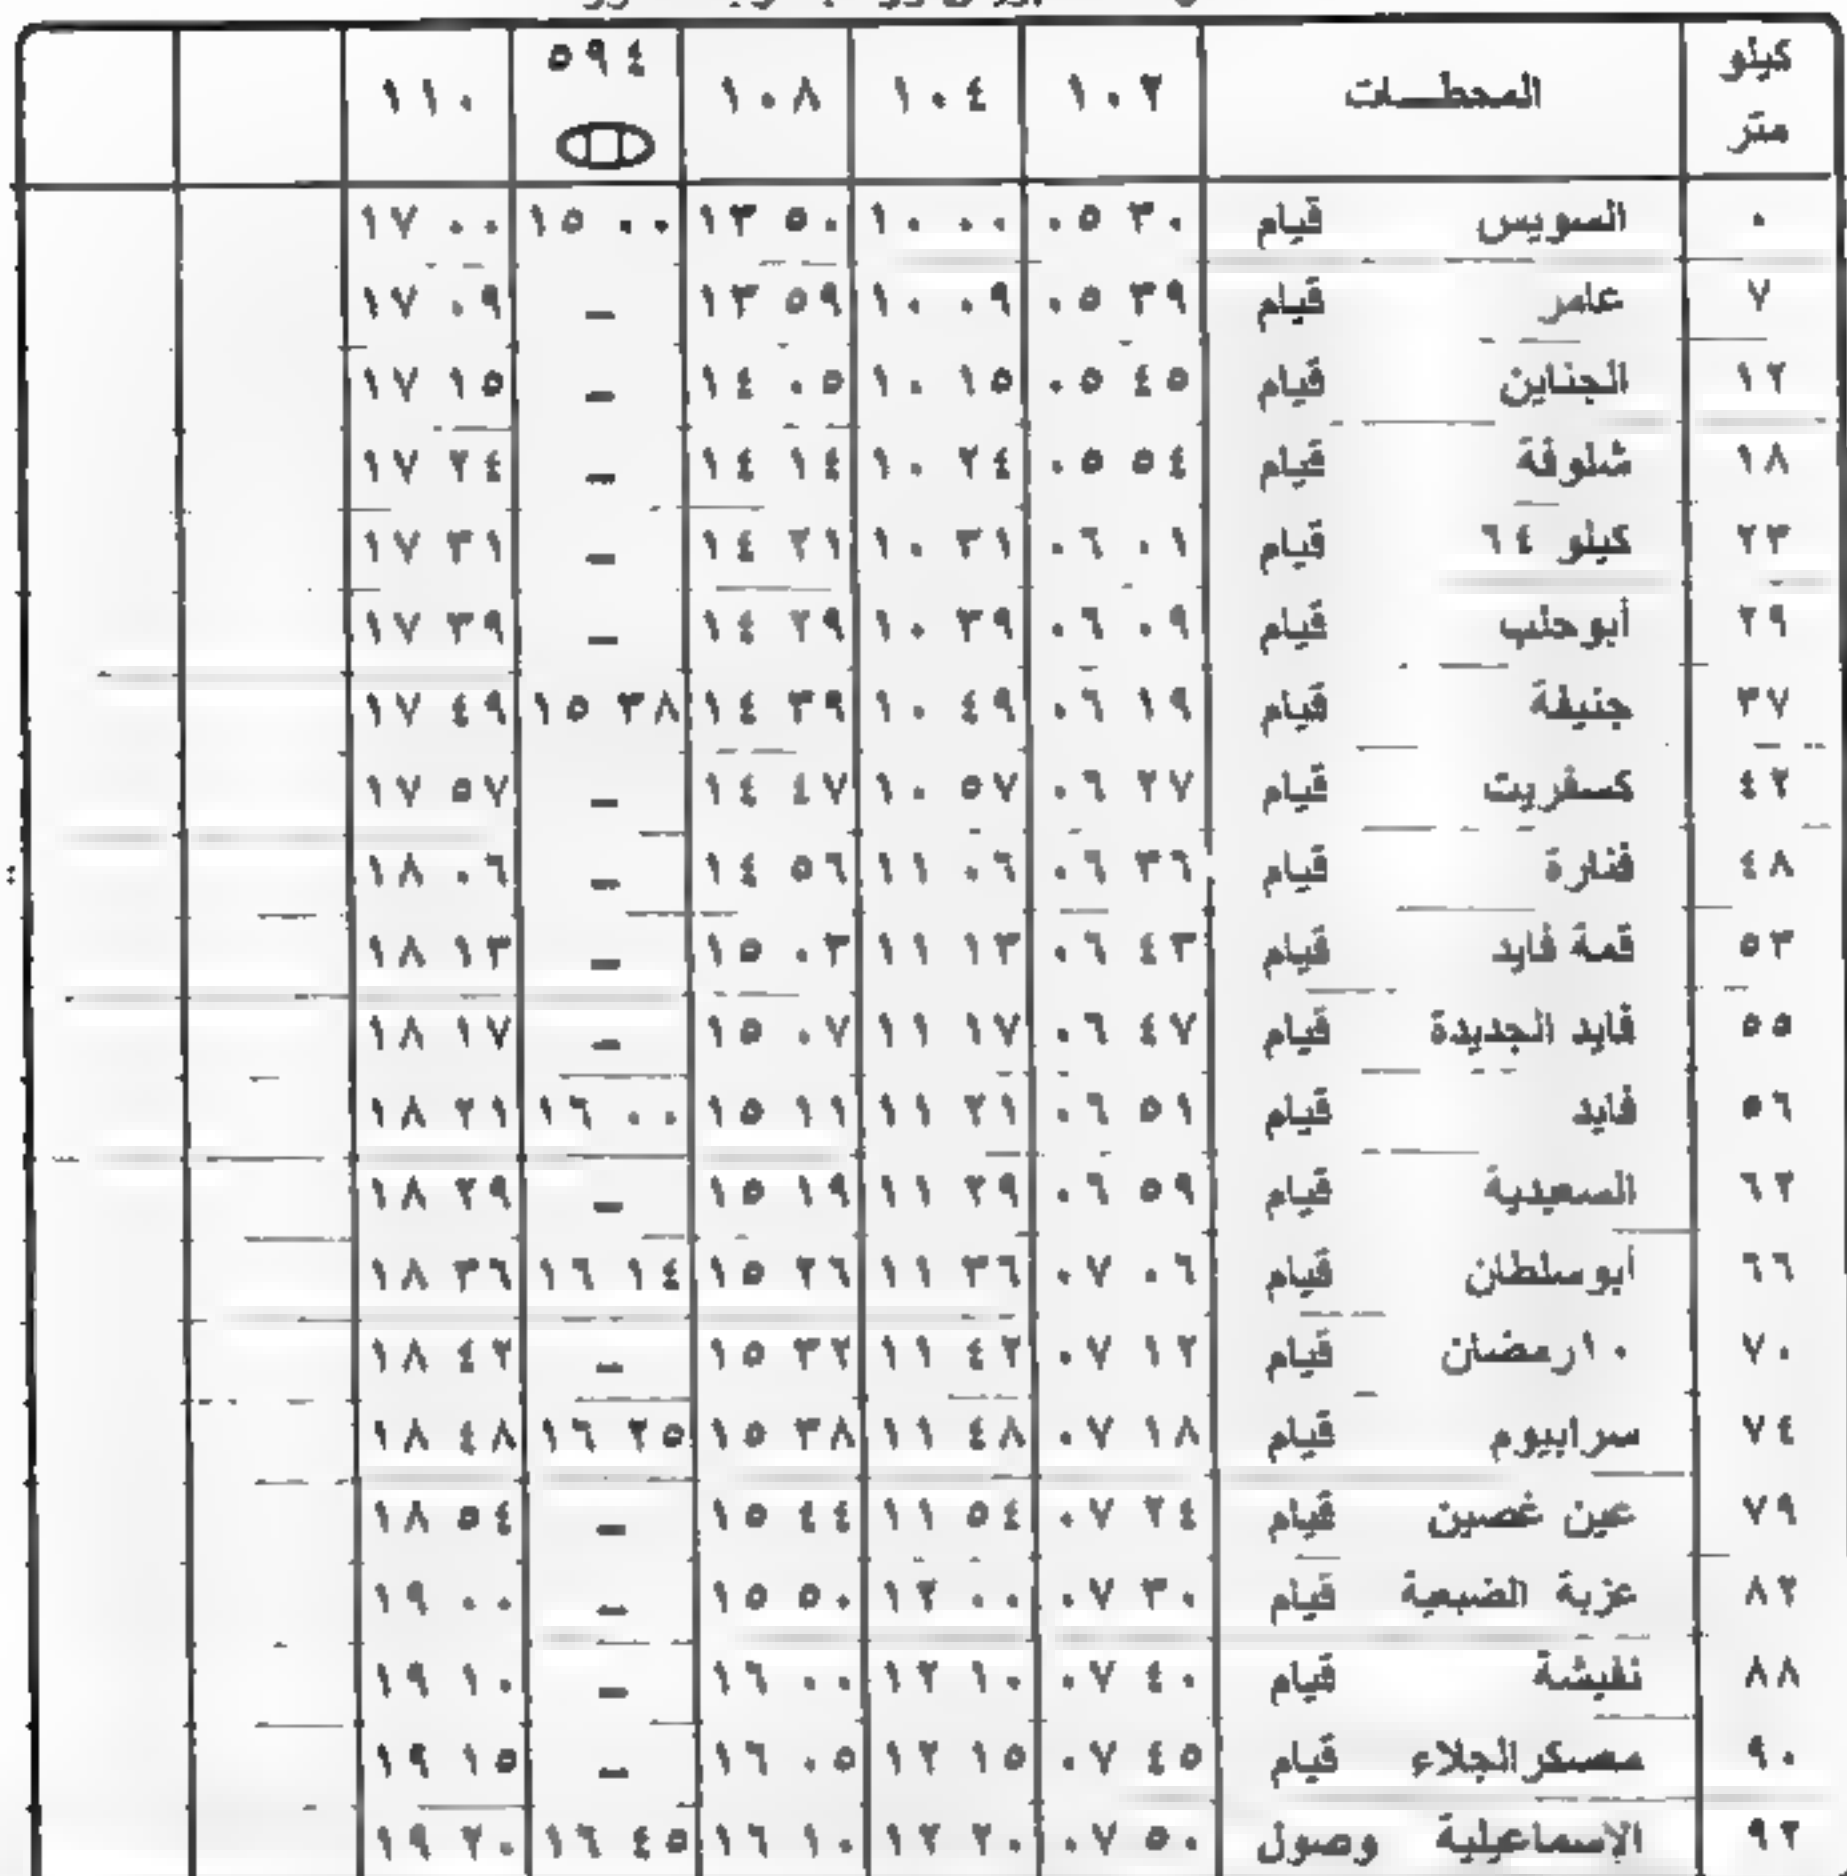 كيلو متر | المحطات | ١٠٢ | ١٠٤ | ١٠٨ | ٥٩٤ | ١١٠
٠ | السويس قيام | ٠٥ ٣٠ | ١٠ ٠٠ | ١٣ ٥٠ | ١٥ ٠٠ | ١٧ ٠٠
٧ | عامر قيام | ٠٥ ٣٩ | ١٠ ٠٩ | ١٣ ٥٩ | – | ١٧ ٠٩
١٢ | الجناين قيام | ٠٥ ٤٥ | ١٠ ١٥ | ١٤ ٠٥ | – | ١٧ ١٥
١٨ | شلوفة قيام | ٠٥ ٥٤ | ١٠ ٢٤ | ١٤ ١٤ | – | ١٧ ٢٤
٢٣ | كيلو ٦٤ قيام | ٠٦ ٠١ | ١٠ ٣١ | ١٤ ٢١ | – | ١٧ ٣١
٢٩ | أبوحلب قيام | ٠٦ ٠٩ | ١٠ ٣٩ | ١٤ ٢٩ | – | ١٧ ٣٩
٣٧ | جنيفة قيام | ٠٦ ١٩ | ١٠ ٤٩ | ١٤ ٣٩ | ١٥ ٣٨ | ١٧ ٤٩
٤٢ | كسفريت قيام | ٠٦ ٢٧ | ١٠ ٥٧ | ١٤ ٤٧ | – | ١٧ ٥٧
٤٨ | فنارة قيام | ٠٦ ٣٦ | ١١ ٠٦ | ١٤ ٥٦ | – | ١٨ ٠٦
٥٣ | قمة فايد قيام | ٠٦ ٤٣ | ١١ ١٣ | ١٥ ٠٣ | – | ١٨ ١٣
٥٥ | فايد الجديدة قيام | ٠٦ ٤٧ | ١١ ١٧ | ١٥ ٠٧ | – | ١٨ ١٧
٥٦ | فايد قيام | ٠٦ ٥١ | ١١ ٢١ | ١٥ ١١ | ١٦ ٠٠ | ١٨ ٢١
٦٢ | السعيدية قيام | ٠٦ ٥٩ | ١١ ٢٩ | ١٥ ١٩ | – | ١٨ ٢٩
٦٦ | أبوسلطان قيام | ٠٧ ٠٦ | ١١ ٣٦ | ١٥ ٢٦ | ١٦ ١٤ | ١٨ ٣٦
٧٠ | ١٠رمضان قيام | ٠٧ ١٢ | ١١ ٤٢ | ١٥ ٣٢ | – | ١٨ ٤٢
٧٤ | سرابيوم قيام | ٠٧ ١٨ | ١١ ٤٨ | ١٥ ٣٨ | ١٦ ٢٥ | ١٨ ٤٨
٧٩ | عين غصين قيام | ٠٧ ٢٤ | ١١ ٥٤ | ١٥ ٤٤ | – | ١٨ ٥٤
٨٢ | عزبة الضبعية قيام | ٠٧ ٣٠ | ١٢ ٠٠ | ١٥ ٥٠ | – | ١٩ ٠٠
٨٨ | نفيشة قيام | ٠٧ ٤٠ | ١٢ ١٠ | ١٦ ٠٠ | – | ١٩ ١٠
٩٠ | معسكرالجلاء قيام | ٠٧ ٤٥ | ١٢ ١٥ | ١٦ ٠٥ | – | ١٩ ١٥
٩٢ | الإسماعيلية وصول | ٠٧ ٥٠ | ١٢ ٢٠ | ١٦ ١٠ | ١٦ ٤٥ | ١٩ ٢٠